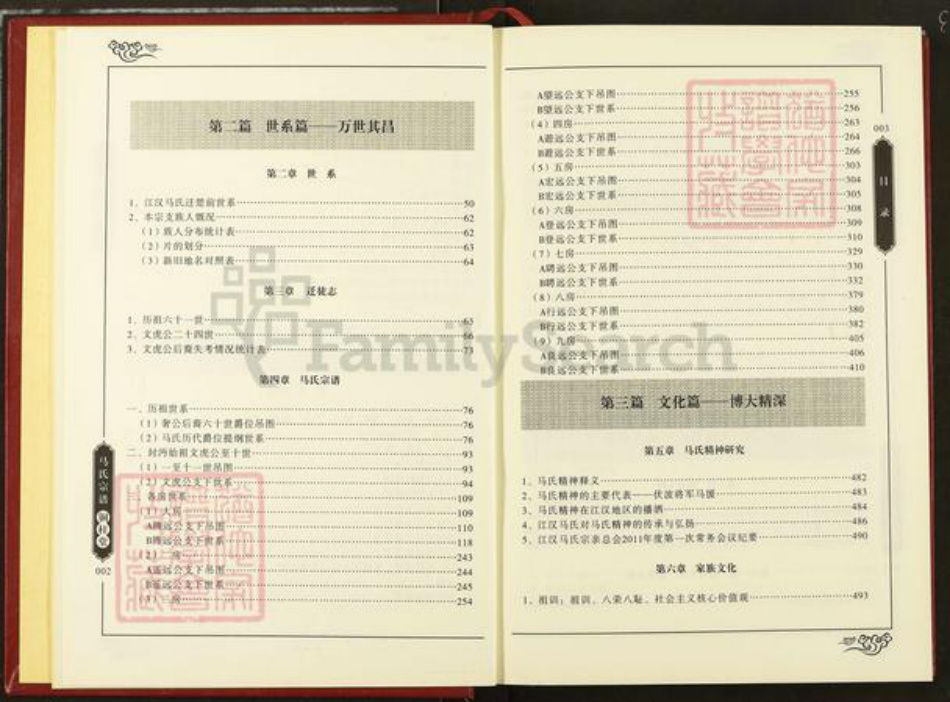 第二篇 世系篇——万世其昌
第二章 世 系
1、江汉马氏迁楚前世系 50
2、本宗支族人概况 62
(1)族人分布统计表 62
(2)片的划分 63
(3)新旧地名对照表 64
第三章 迁徒志
1、历祖六十一世 65
2、文虎公二十四世 66
3、文虎公后裔失考情况统计表 73
第四章 马氏宗谱
一、历祖世系 76
(1)奢公后裔六十世爵位吊图 76
(2)马氏历代爵位提纲世系 76
二、封沔始祖文虎公至十世 93
(1)一至十一世吊图 93
(2)文虎公支下世系 94
三、各房世系 109
(1)大房 109
A 远公支下吊图 110
B 远公支下世系 118
(2)二房 243
A 远公支下吊图 244
B 远公支下世系 245
(3)三房 254
马氏宗谱
002
A望远公支下吊图 255
B望远公支下世系 256
(4)四房 263
A 远公支下吊图 264
B 远公支下世系 266
(5)五房 303
A宏远公支下吊图 304
B宏远公支下世系 305
(6)六房 308
A登远公支下吊图 309
B登远公支下世系 310
(7)七房 329
A聘远公支下吊图 330
B聘远公支下世系 332
(8)八房 379
A行远公支下吊图 380
B行远公支下世系 382
(9)九房 405
A良远公支下吊图 406
B良远公支下世系 410
第三篇 文化篇——博大精深
第五章 马氏精神研究
1、马氏精神释义 482
2、马氏精神的主要代表——伏波将军马援 483
3、马氏精神在江汉地区的播洒 484
4、江汉马氏对马氏精神的传承与弘扬 486
5、江汉马氏宗亲总会2011年度第一次常务会议纪要 490
第六章 家族文化
1、祖训：祖训、八荣八耻、社会主义核心价值观 493
003
目录
FamilySearch